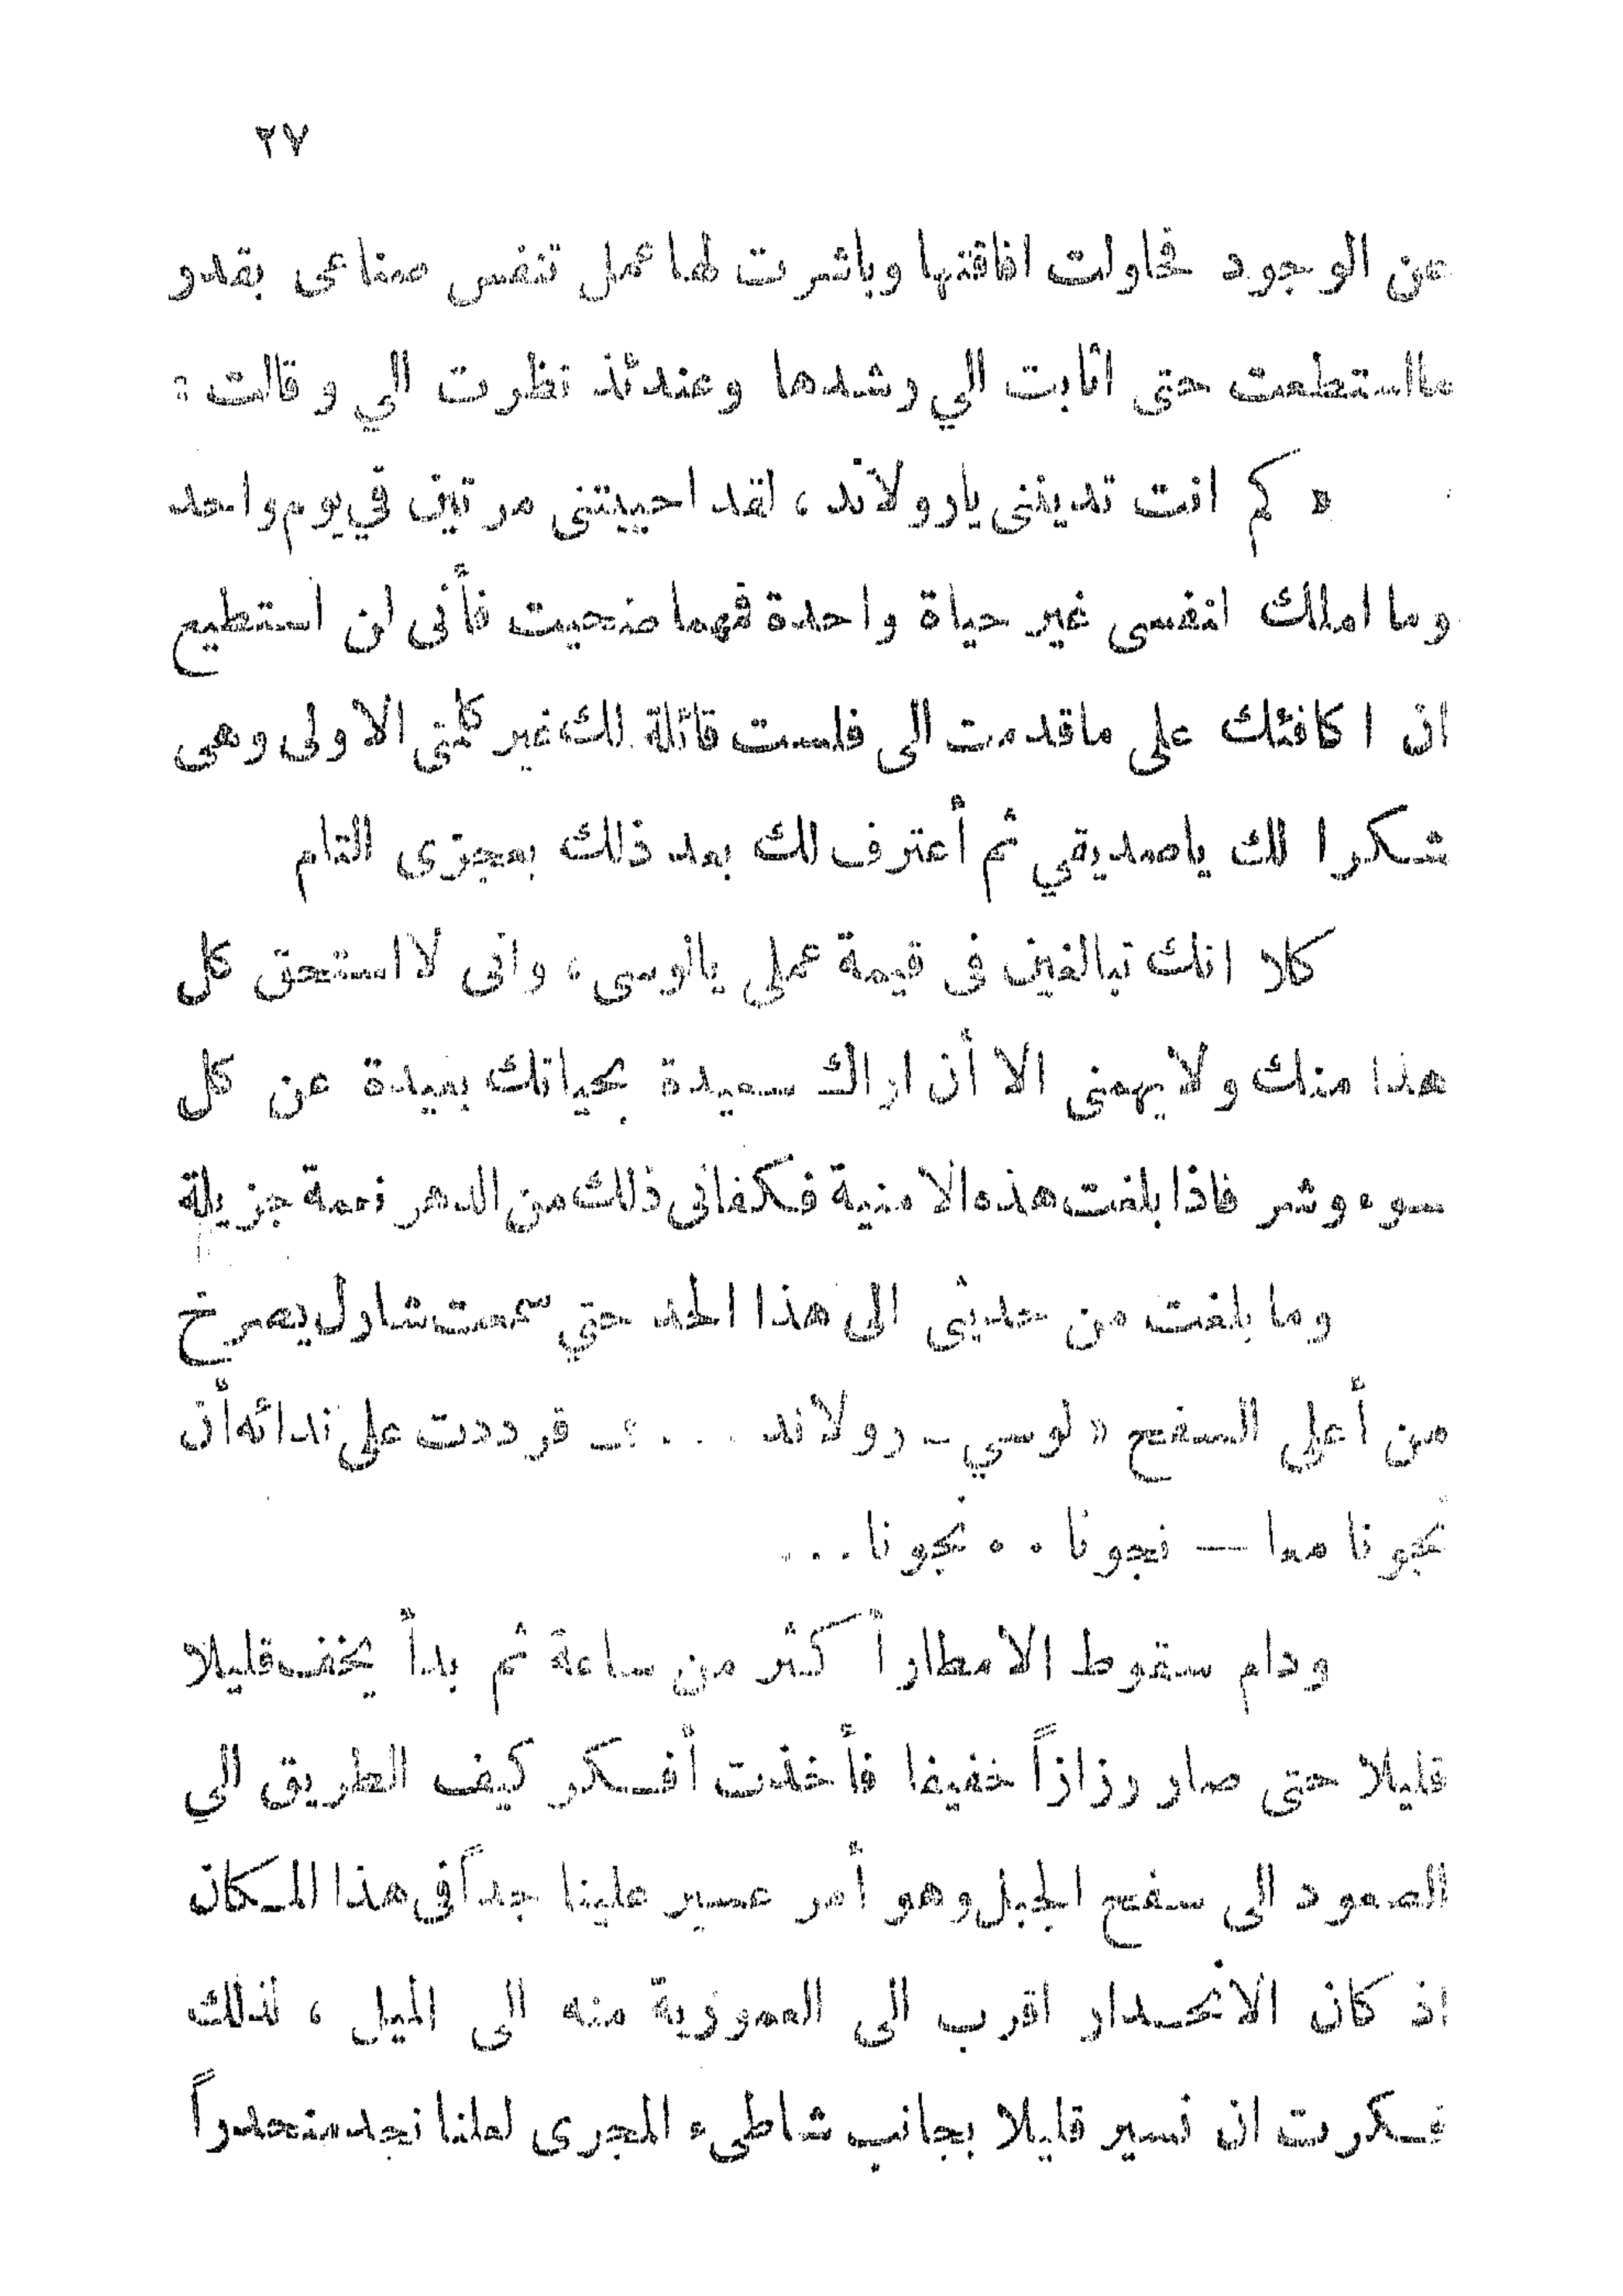 ٢٧
عن الوجود فحاولت افاقتها وباشرت لها عمل تنفس صناعى بقدر
مااستطعت حتى اثابت الي رشدها وعندئذ نظرت الي وقالت :
« كم انت تدينني يارولاند ، لقد احييتنى مرتين في يوم واحد
وما املك لنفسى غير حياة واحدة فمهما ضحيت فأنى لن استطيع
ان اكافئك على ماقدمت الى فلست قائلة لك غير كلمتى الاولى وهى
شكرا لك ياصديقي ثم أعترف لك بعد ذلك بعجزى التام
كلا انك تبالغين فى قيمة عملي يالوسى ، وانى لا استحق كل
هذا منك ولا يهمنى الا أن اراك سعيدة بحياتك بعيدة عن كل
سوء وشر فاذا بلغت هذه الامنية فكفانى ذلك من الدهر نعمة جزيلة
وما بلغت من حديثى الى هذا الحد حتي سمعت شاول يصرخ
من أعلى السفح « لوسي ـ رولاند . . . ؟ـ فرددت على ندائه أن
نجونا معا — نجونا . . نجونا . . .
ودام سقوط الامطار أكثر من ساعة ثم بدأ يخف قليلا
قليلا حتى صار رزازاً خفيفا فأخذت أفكر كيف الطريق الي
الصعود الى سفح الجبل وهو أمر عسير علينا جداً فى هذا المكان
اذ كان الانحدار اقرب الى العموزية منه الى الميل ، لذلك
فكرت ان نسير قليلا بجانب شاطىء المجرى لعلنا نجد منحدراً